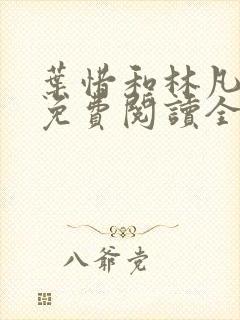 葉惜和林凡
免費閱讀全
八爺党